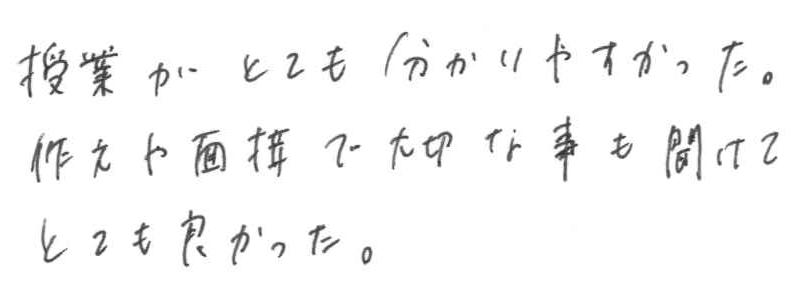 授業がとても分かりやすかった。
作文や面接で大切な事も聞けて
とても良かった。